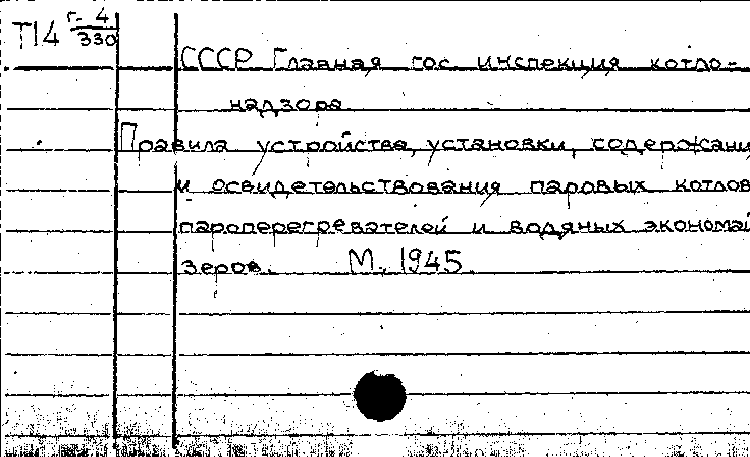 Т14 г-4/330
СССР Главная гос инспекция котло-
надзора
Правила устройства, установки, содержани
и освидетельствования паровых котлов
пароперегревателей и водяных экономай
зеров. М., 1945.